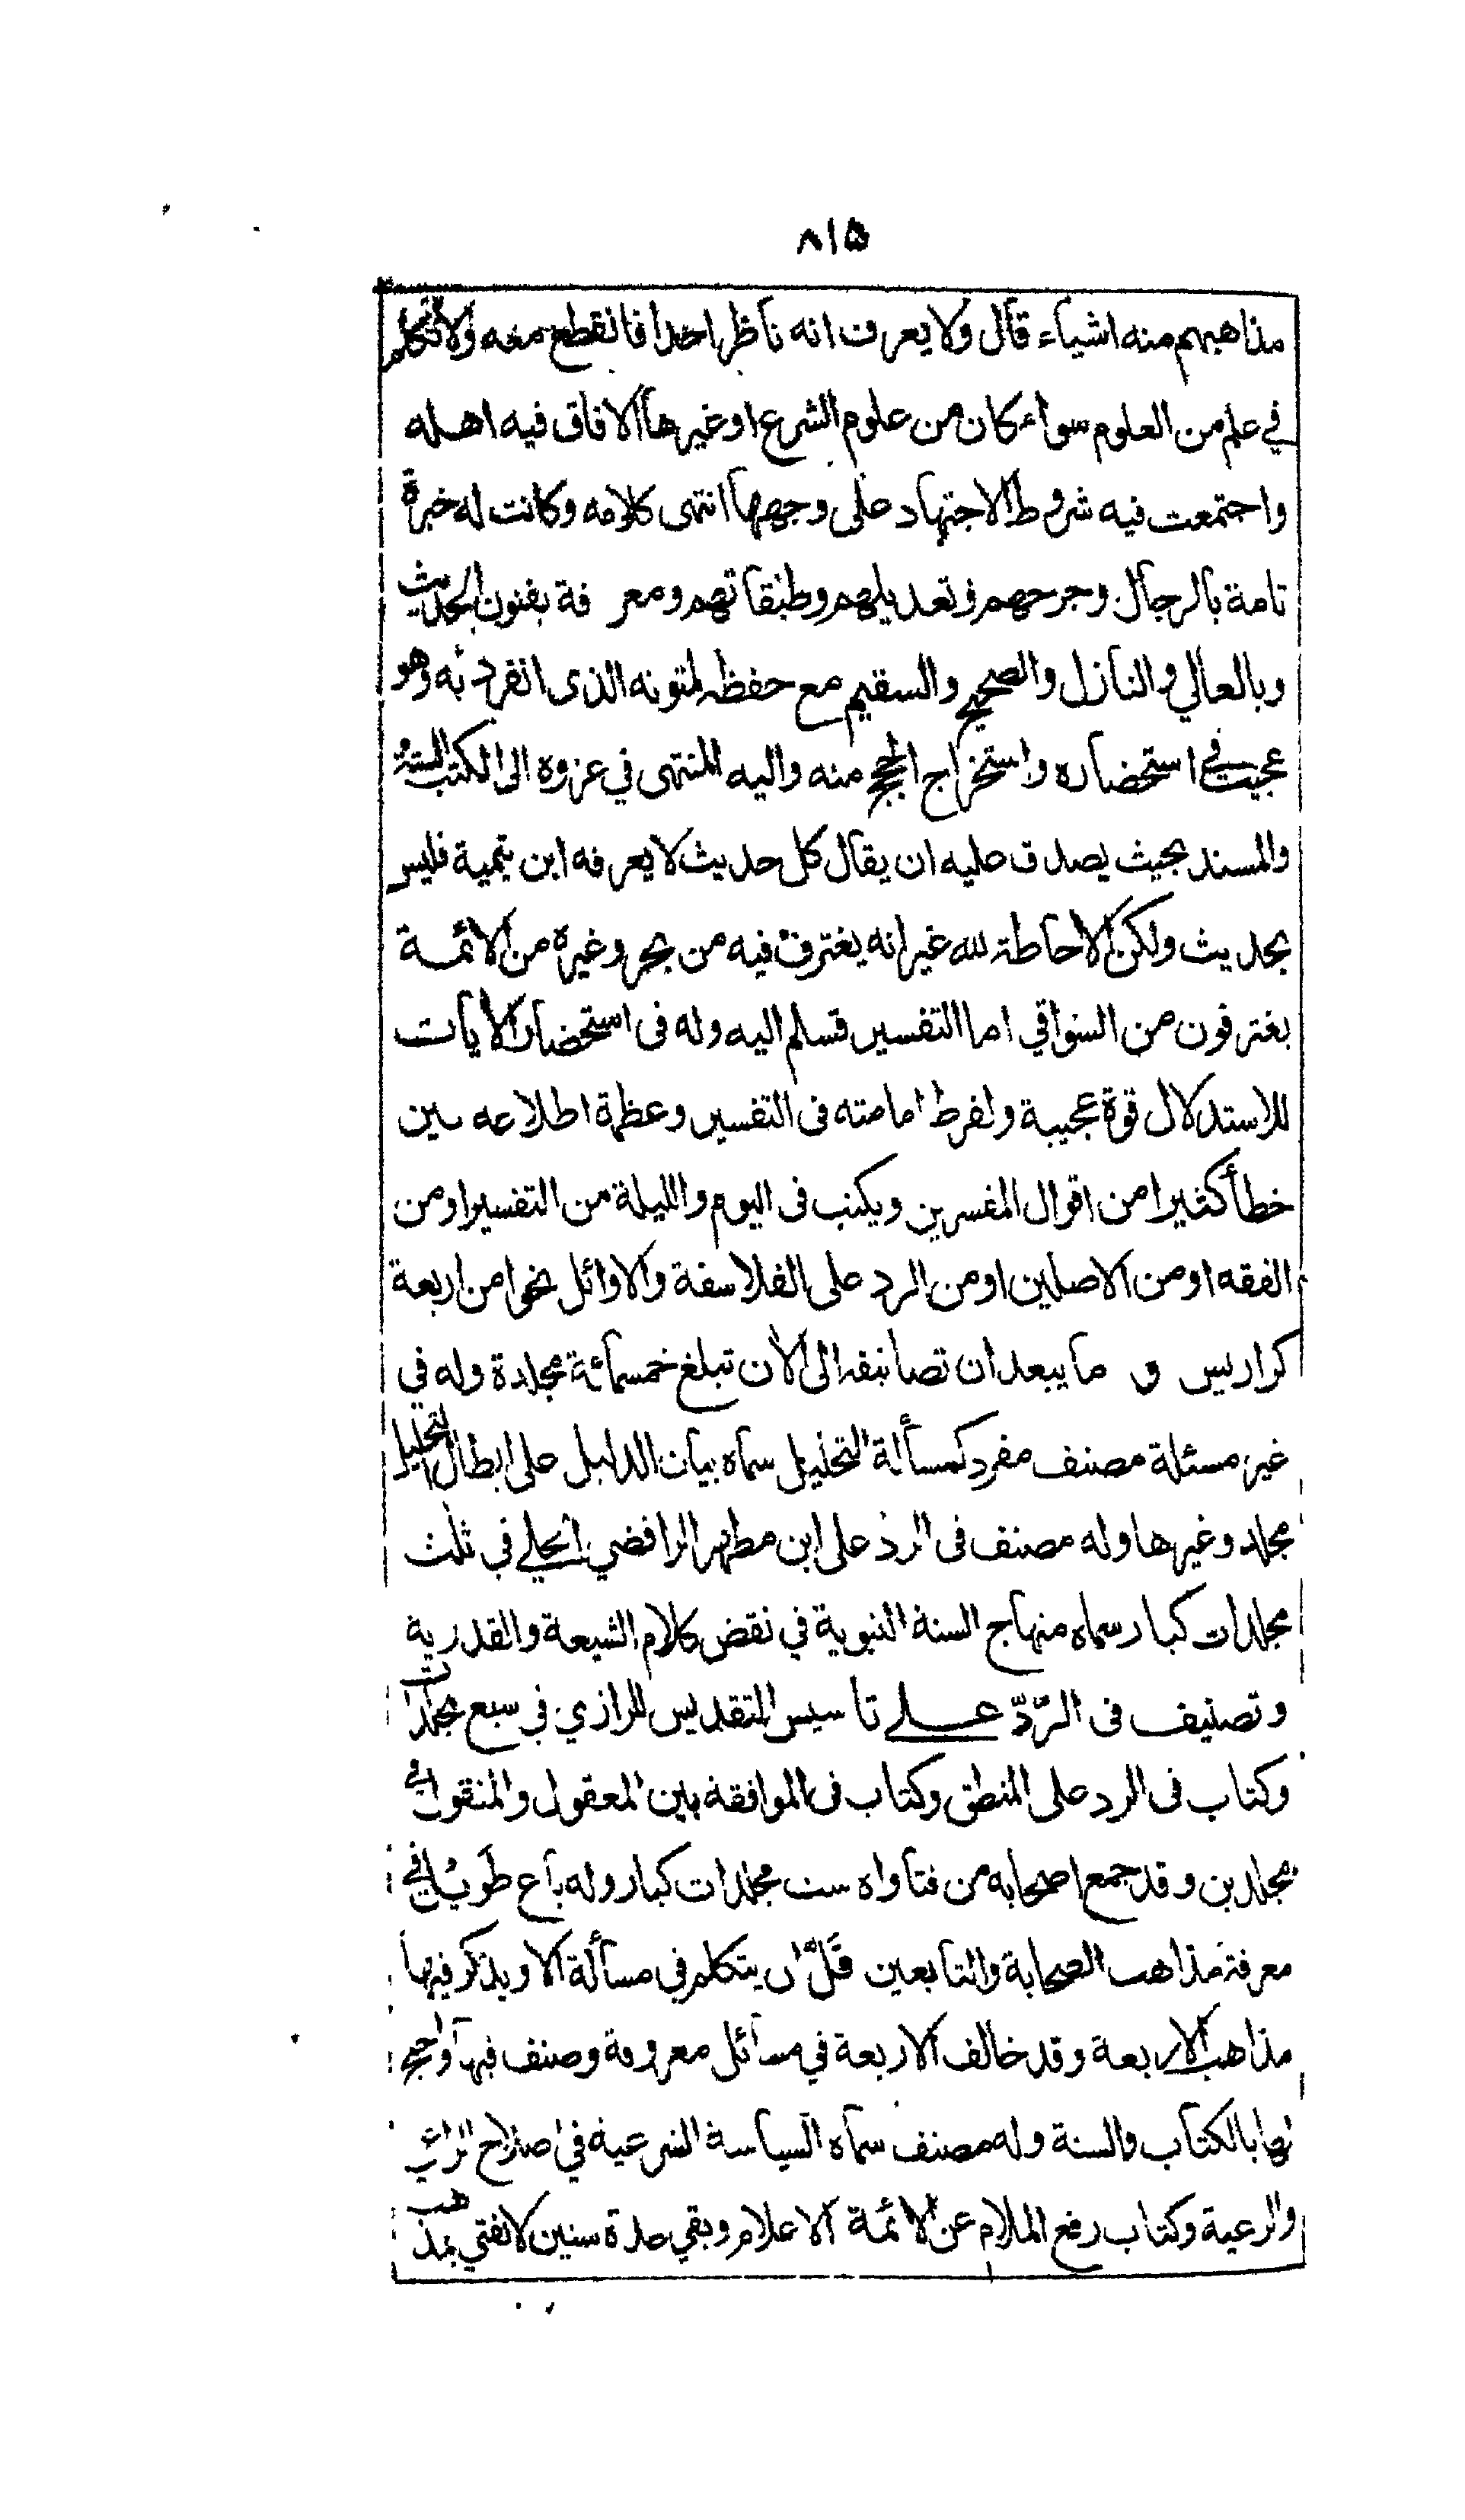 ٨١٥
مذاهبهم منه اشياء قال ولا يعرف انه ناظر احدا فانقطع معه ولا تكلم
في علم من العلوم سواء كان من علوم الشرع او غيرها الا فاق فيه اهله
واجتمعت فيه شروط الاجتهاد على وجهها انتهى كلامه وكانت له خبرة
تامة بالرجال وجرحهم وتعديلهم وطبقاتهم ومعرفة بفنون الحديث
وبالعالي والنازل والصحيح والسقيم مع حفظه لمتونه الذى انفرد به وهو
عجيب في استحضاره واستخراج الحجج منه واليه المنتهى في عزوه الى الكتب الستة
والمسند بحيث يصدق عليه ان يقال كل حديث لا يعرفه ابن تيمية فليس
بحديث ولكن الاحاطة لله غير انه يغترف فيه من بحر وغيره من الائمة
يغترفون من السواقي اما التفسير فسلم اليه وله فى استحضار الأيات
للاستدلال قوة عجيبة ولفرط امامته فى التفسير وعظمة اطلاعه بين
خطأ كثيرا من اقوال المفسرين ويكتب فى اليوم والليلة من التفسير او من
الفقه او من الاصلين او من الرد على الفلاسفة والاوائل نحوا من اربعة
كراريس و ما يبعد ان تصانيفه الى الأن تبلغ خمسمائة مجلدة وله في
غير مسئلة مصنف مفرد كمسألة التحليل سماه بيان الدليل على ابطال التحليل
مجلد وغيرها وله مصنف فى الرد على ابن مطهر الرافضي الحلي في ثلث
مجلدات كبار سماه منهاج السنة النبوية في نقض كلام الشيعة والقدرية
وتصنيف فى الرّدّ علے تاسيس التقديس للرازي في سبع مجلدات
وكتاب فى الرد على المنطق وكتاب فى الموافقة بين المعقول والمنقول في
مجلدين وقد جمع اصحابه من فتاواه ست مجلدات كبار وله باع طويل في
معرفة مذاهب الصحابة والتابعين قَلّ ان يتكلم في مسألة الا ويذكر فيها
مذاهب الاربعة وقد خالف الاربعة في مسائل معروفة وصنف فيها واحتج
لها بالكتاب والسنة وله مصنف سماه السياسة الشرعية في اصلاح الراعي
والرعية وكتاب رفع الملام عن الائمة الاعلام وبقي عدة سنين لا يفتي بمذهب